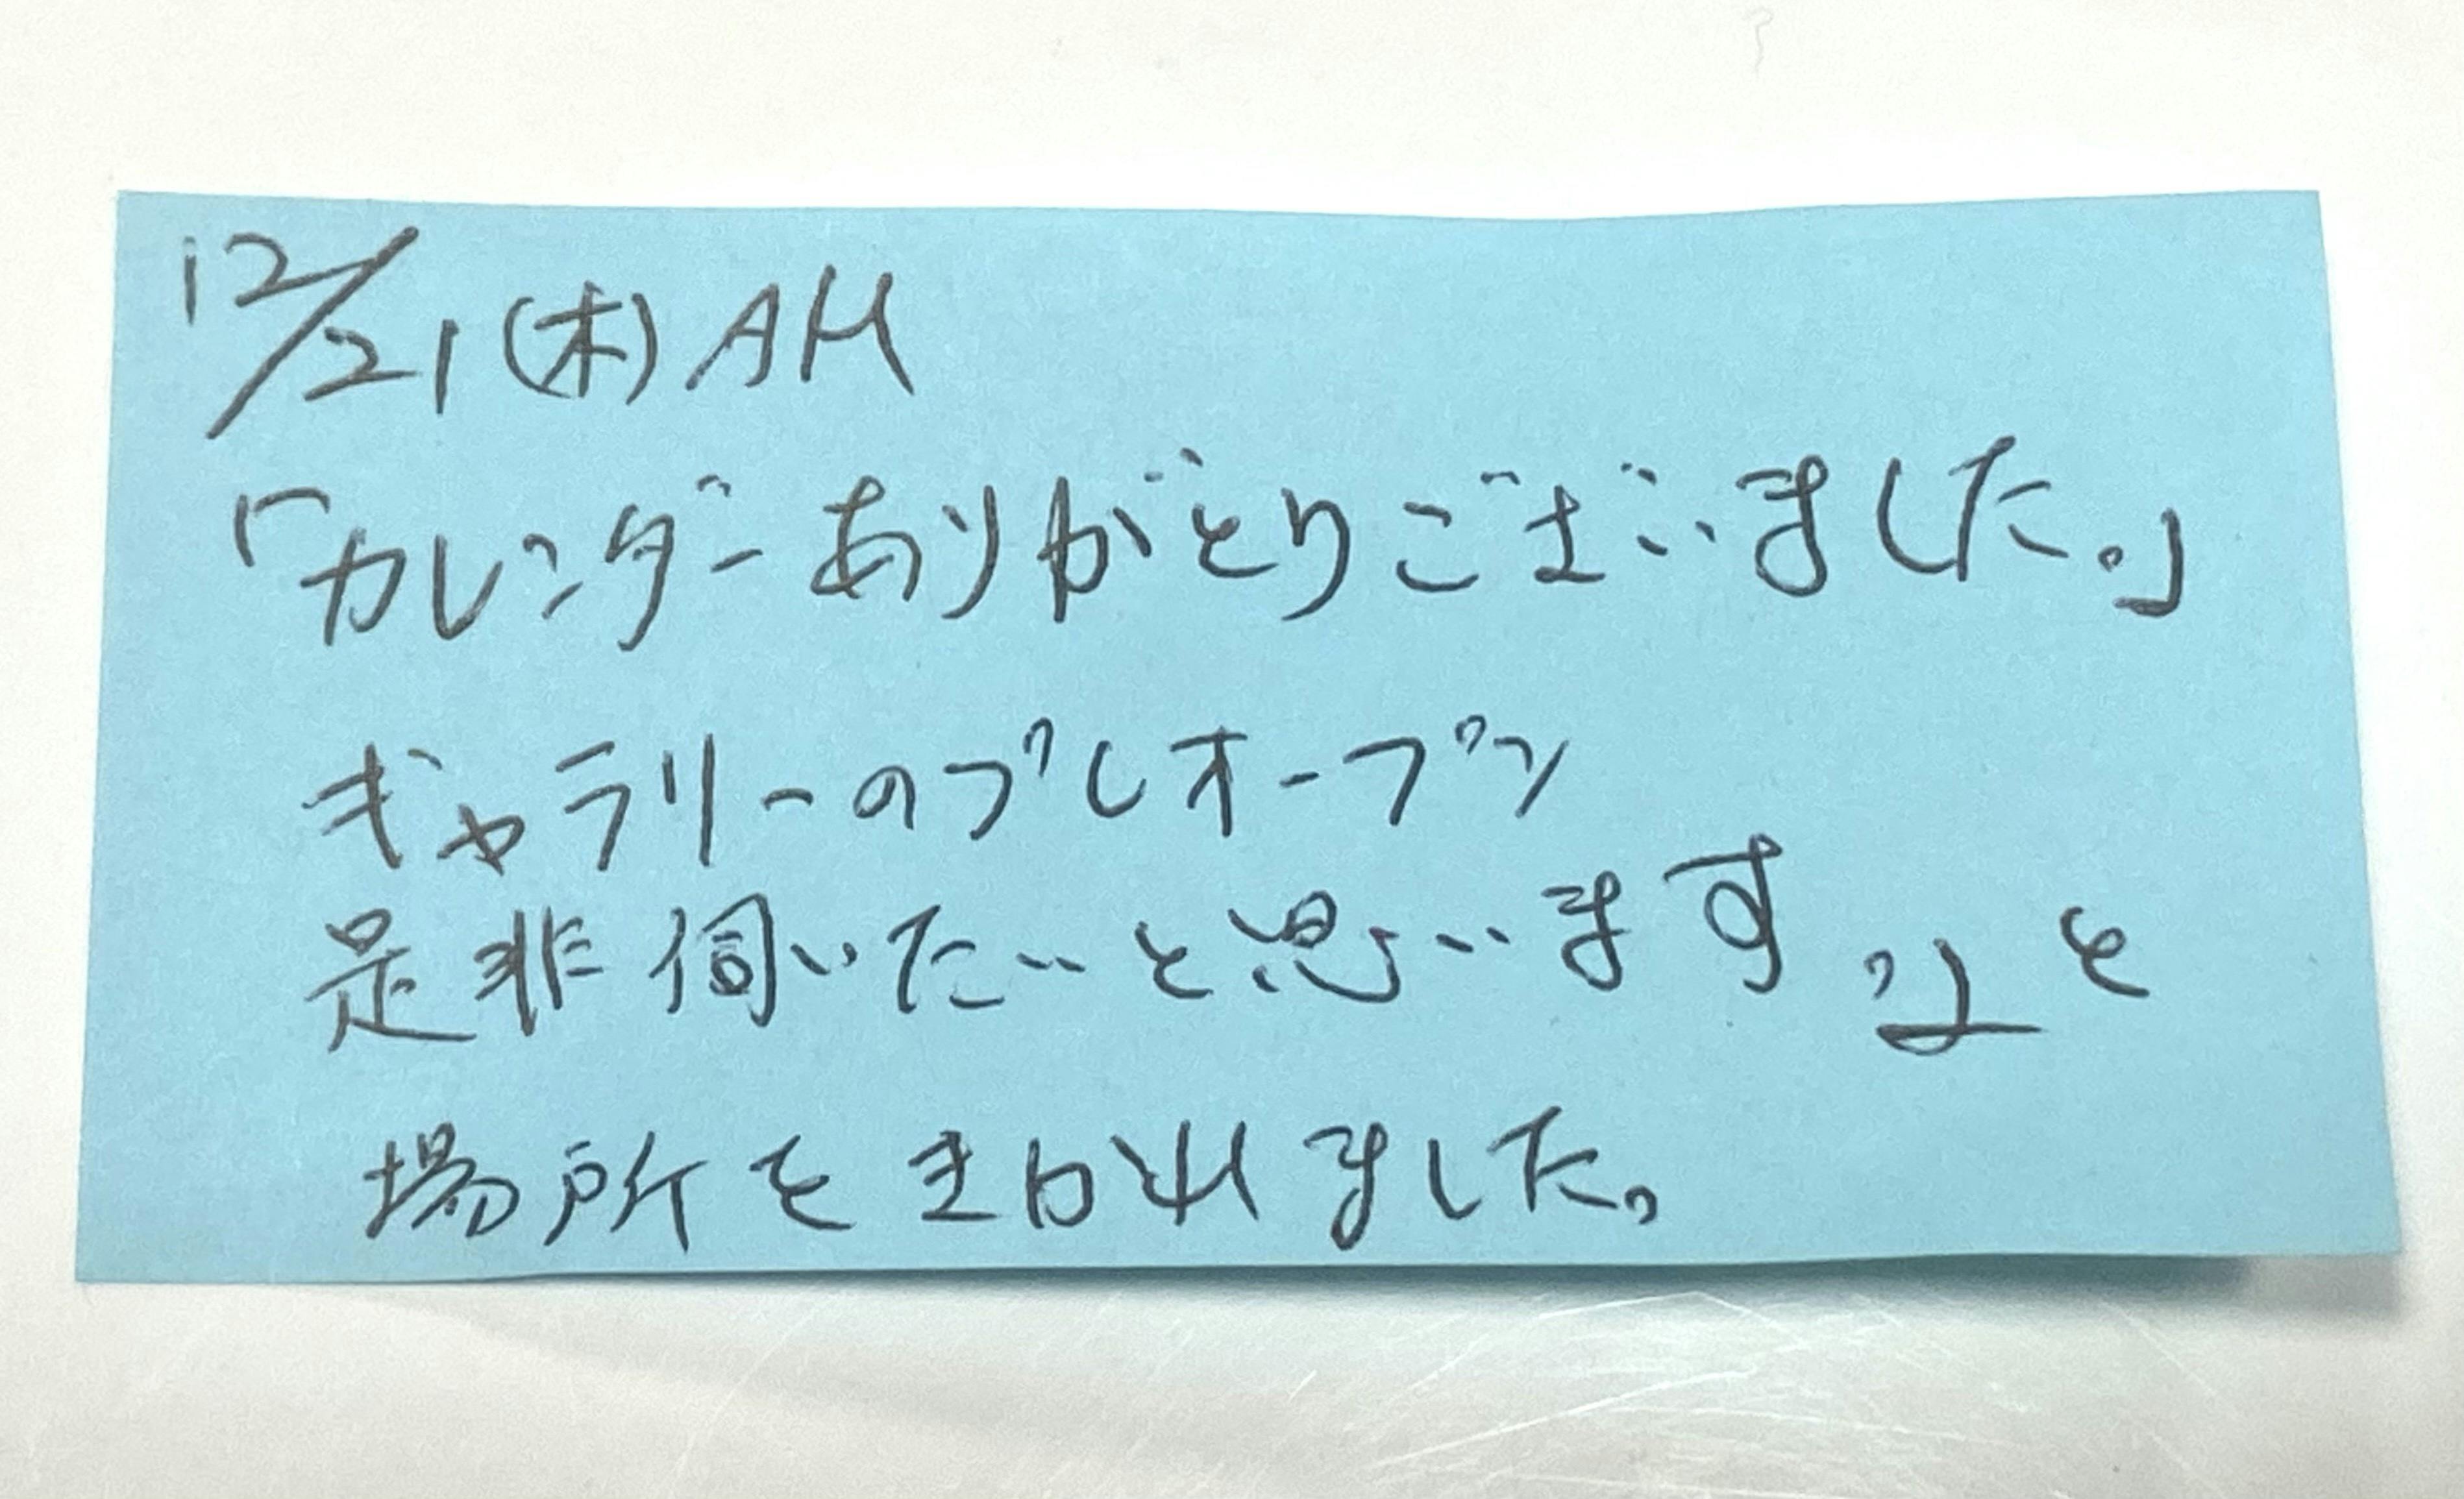 12/21(木)AM
「カレンダーありがとうございました。」
ギャラリーのプレオープン
是非伺いたいと思います。」と
場所をきかれました。